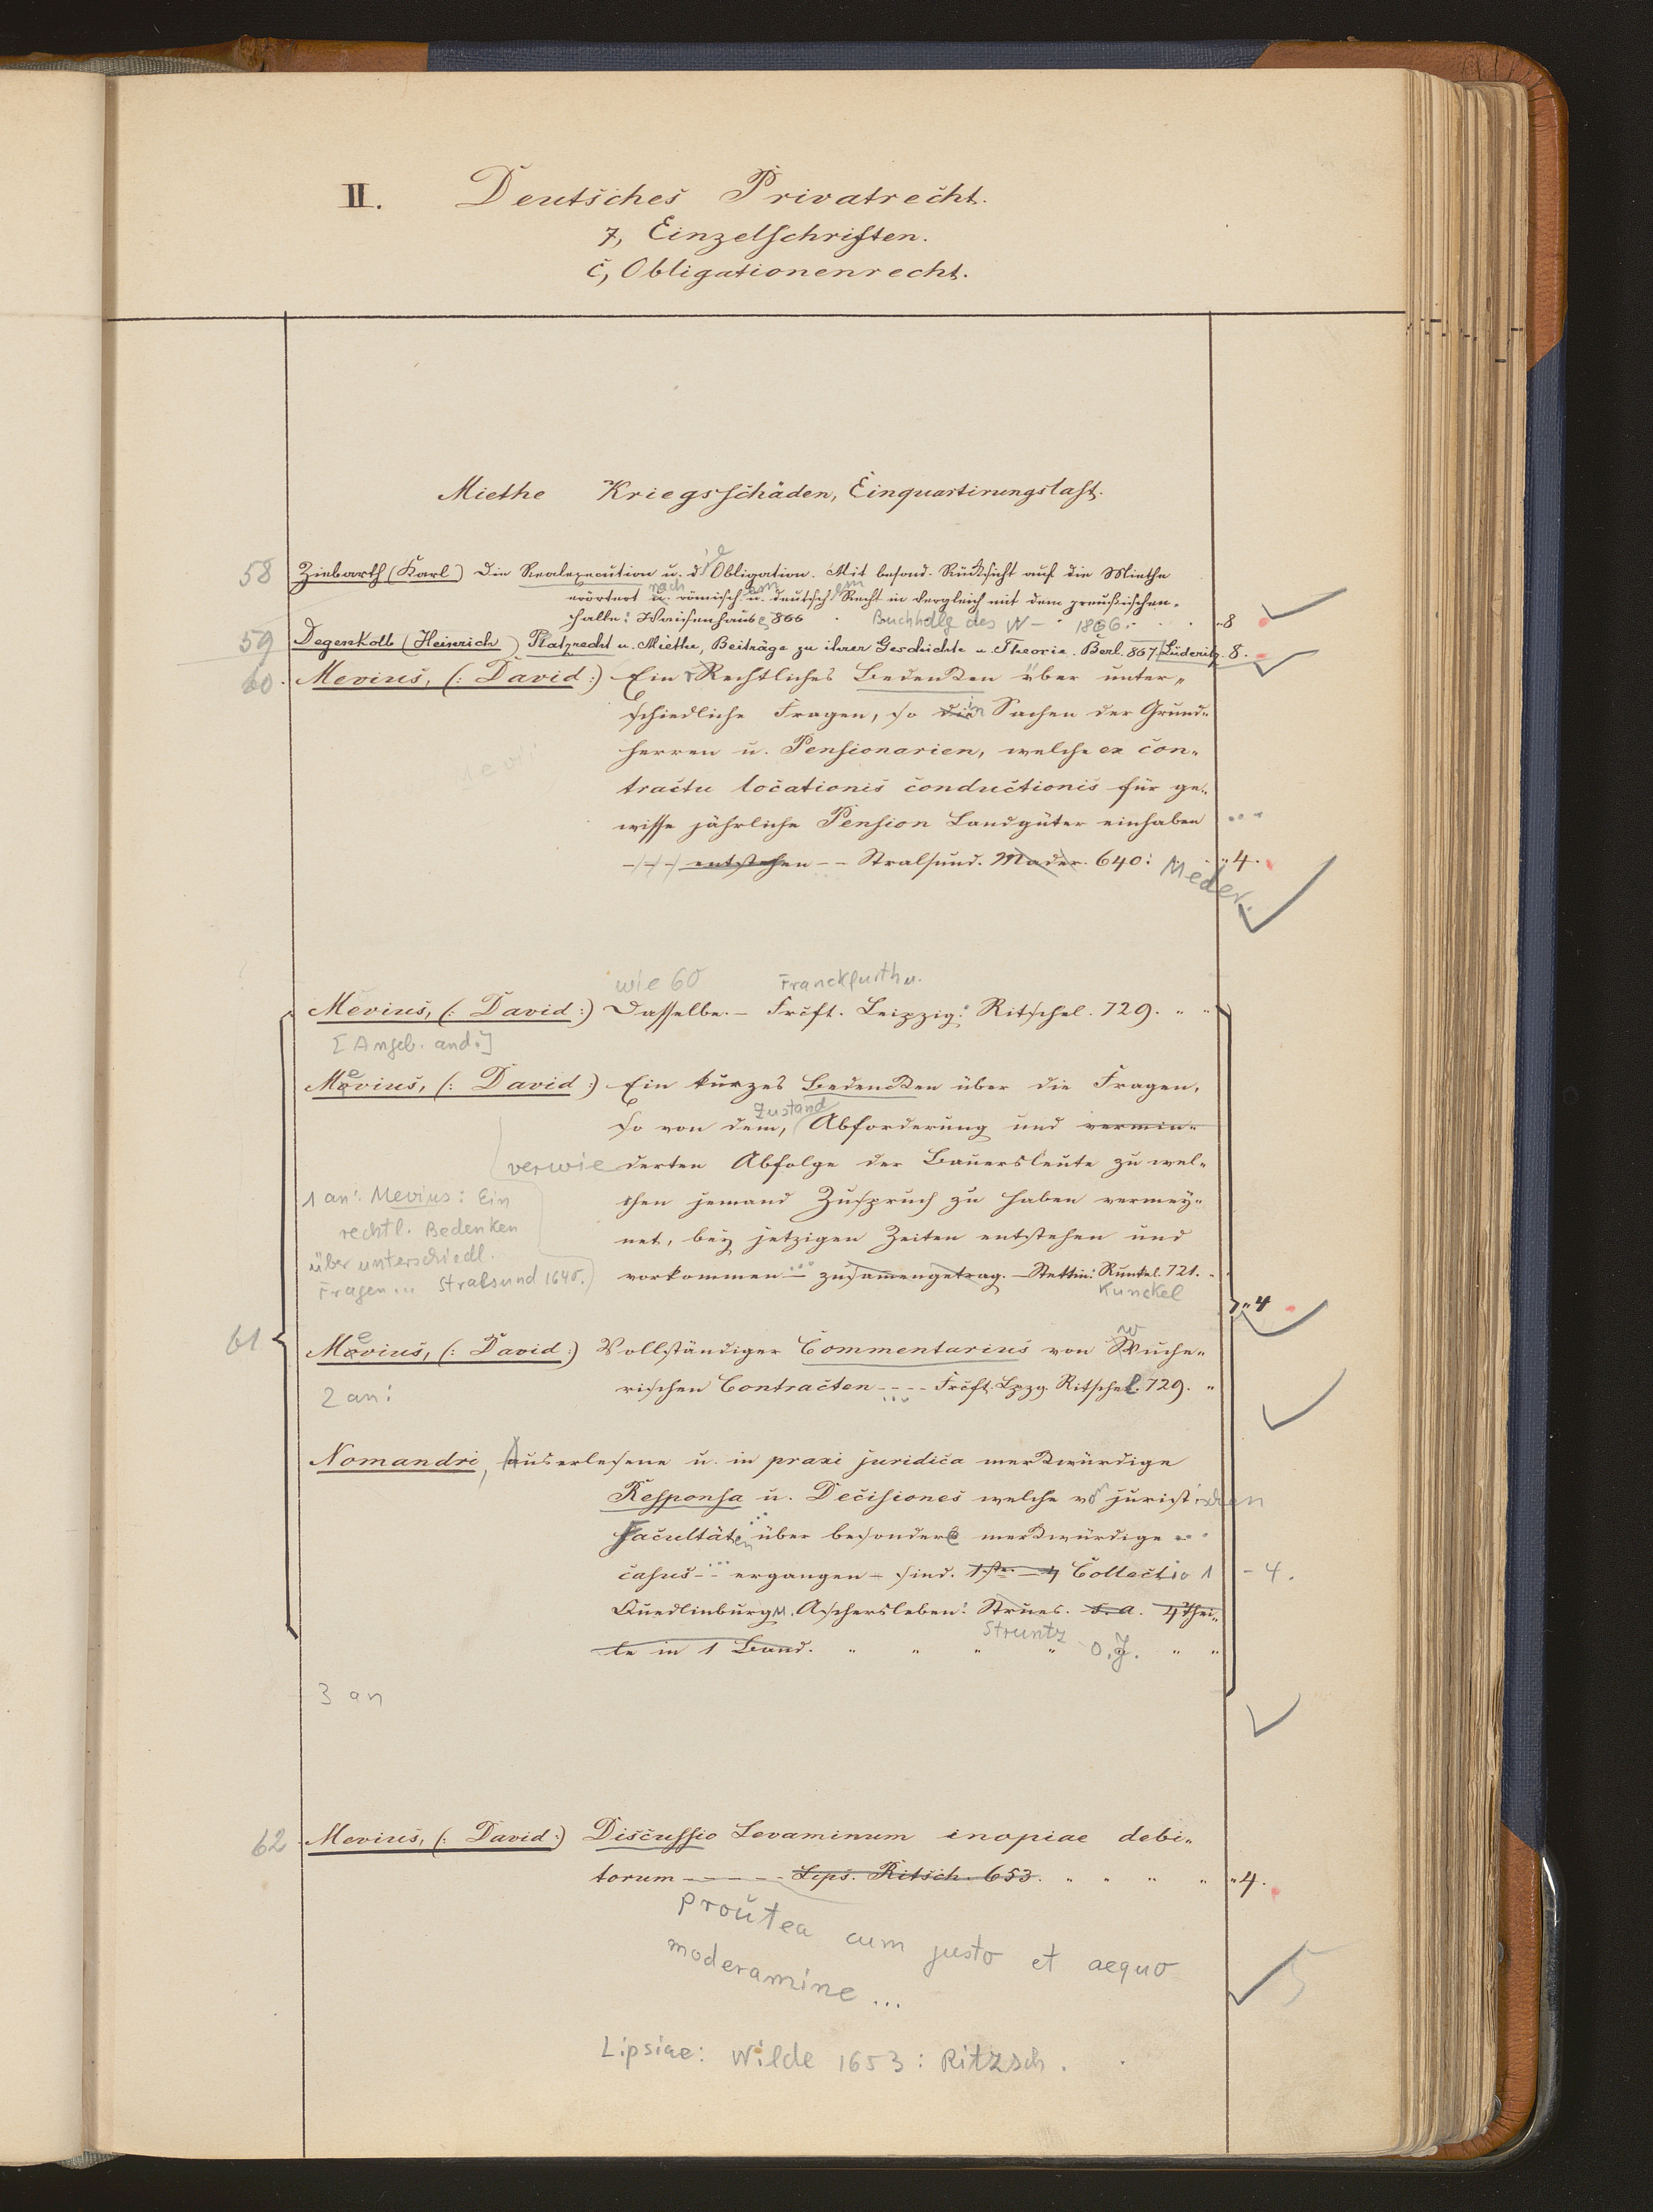 II. Deutsches Privatrecht.
7, Einzelschriften.
c, Obligationenrecht.
Miethe Kriegsschäden, Einquartirungslast.
58 Ziebarth (Karl) Die Realexecution u. die Obligation. Mit besond. Rücksicht auf die Miethe
erörtert nach römischem u. deutschem Recht in Vergleich mit dem preußischen.
Halle: Waisenhaus 866 . Buchhdlg des W – 1866. "8
59 Degenkolb (Heinrich) Platzrecht u. Miethe, Beiträge zu ihrer Geschichte u. Theorie. Berl. 867. Lüderitz. 8.
60. Mevius, (: David :) Ein Rechtliches Bedenken über unter-
schiedliche Fragen, so in Sachen der Grund-
herren u. Pensionarien, welche ex con-
tractu locationis conductionis für ge-
wisse jährliche Pension Landgüter einhaben ...
entstehen -- Stralsund. Mader. 640: "4.
Meder.
wie 60 Franckfurth u.
Mevius, (: David :) Dasselbe. – Frcft. Leipzig: Ritschel. 729. " "
[Angeb. and.]
Mevius, (: David :) Ein kurzes Bedencken über die Fragen,
Zustand
so von dem, Abforderung und vermin-
verwie derten Abfolge der Bauersleute zu wel-
1 an: Mevius: Ein
chen jemand Zuspruch zu haben vermey-
rechtl. Bedenken
net, bey jetzigen Zeiten entstehen und
über unterschiedl.
Fragen ... Stralsund 1640.
vorkommen – zusamengetrag. – Stettin: Runkel. 721. .
Kunckel
"4
61 Mevius, (: David :) Vollständiger Commentarius von Wuche-
2 an:
rischen Contracten ---- Frcft. Lpzg. Ritschel. 729. "
Nomandri, Auserlesene u. in praxi juridica merkwürdige
Responsa u. Decisiones welche von juristischen
Facultäten über besondere merkwürdige
casus -- ergangen – sind. 1ste – 4 Collectio 1 - 4.
Quedlinburg u. Aschersleben: Strues. s. a. 4 Thei-
le in 1 Band. " " " "
Struntz o. J. " "
3 an
62 Mevius, (: David :) Discussio Levaminum inopiae debi-
torum ----- Lips. Ritsch. 653. " " " " "4.
proutea cum justo et aequo
moderamine ...
Lipsiae: Wilde 1653: Ritzsch.